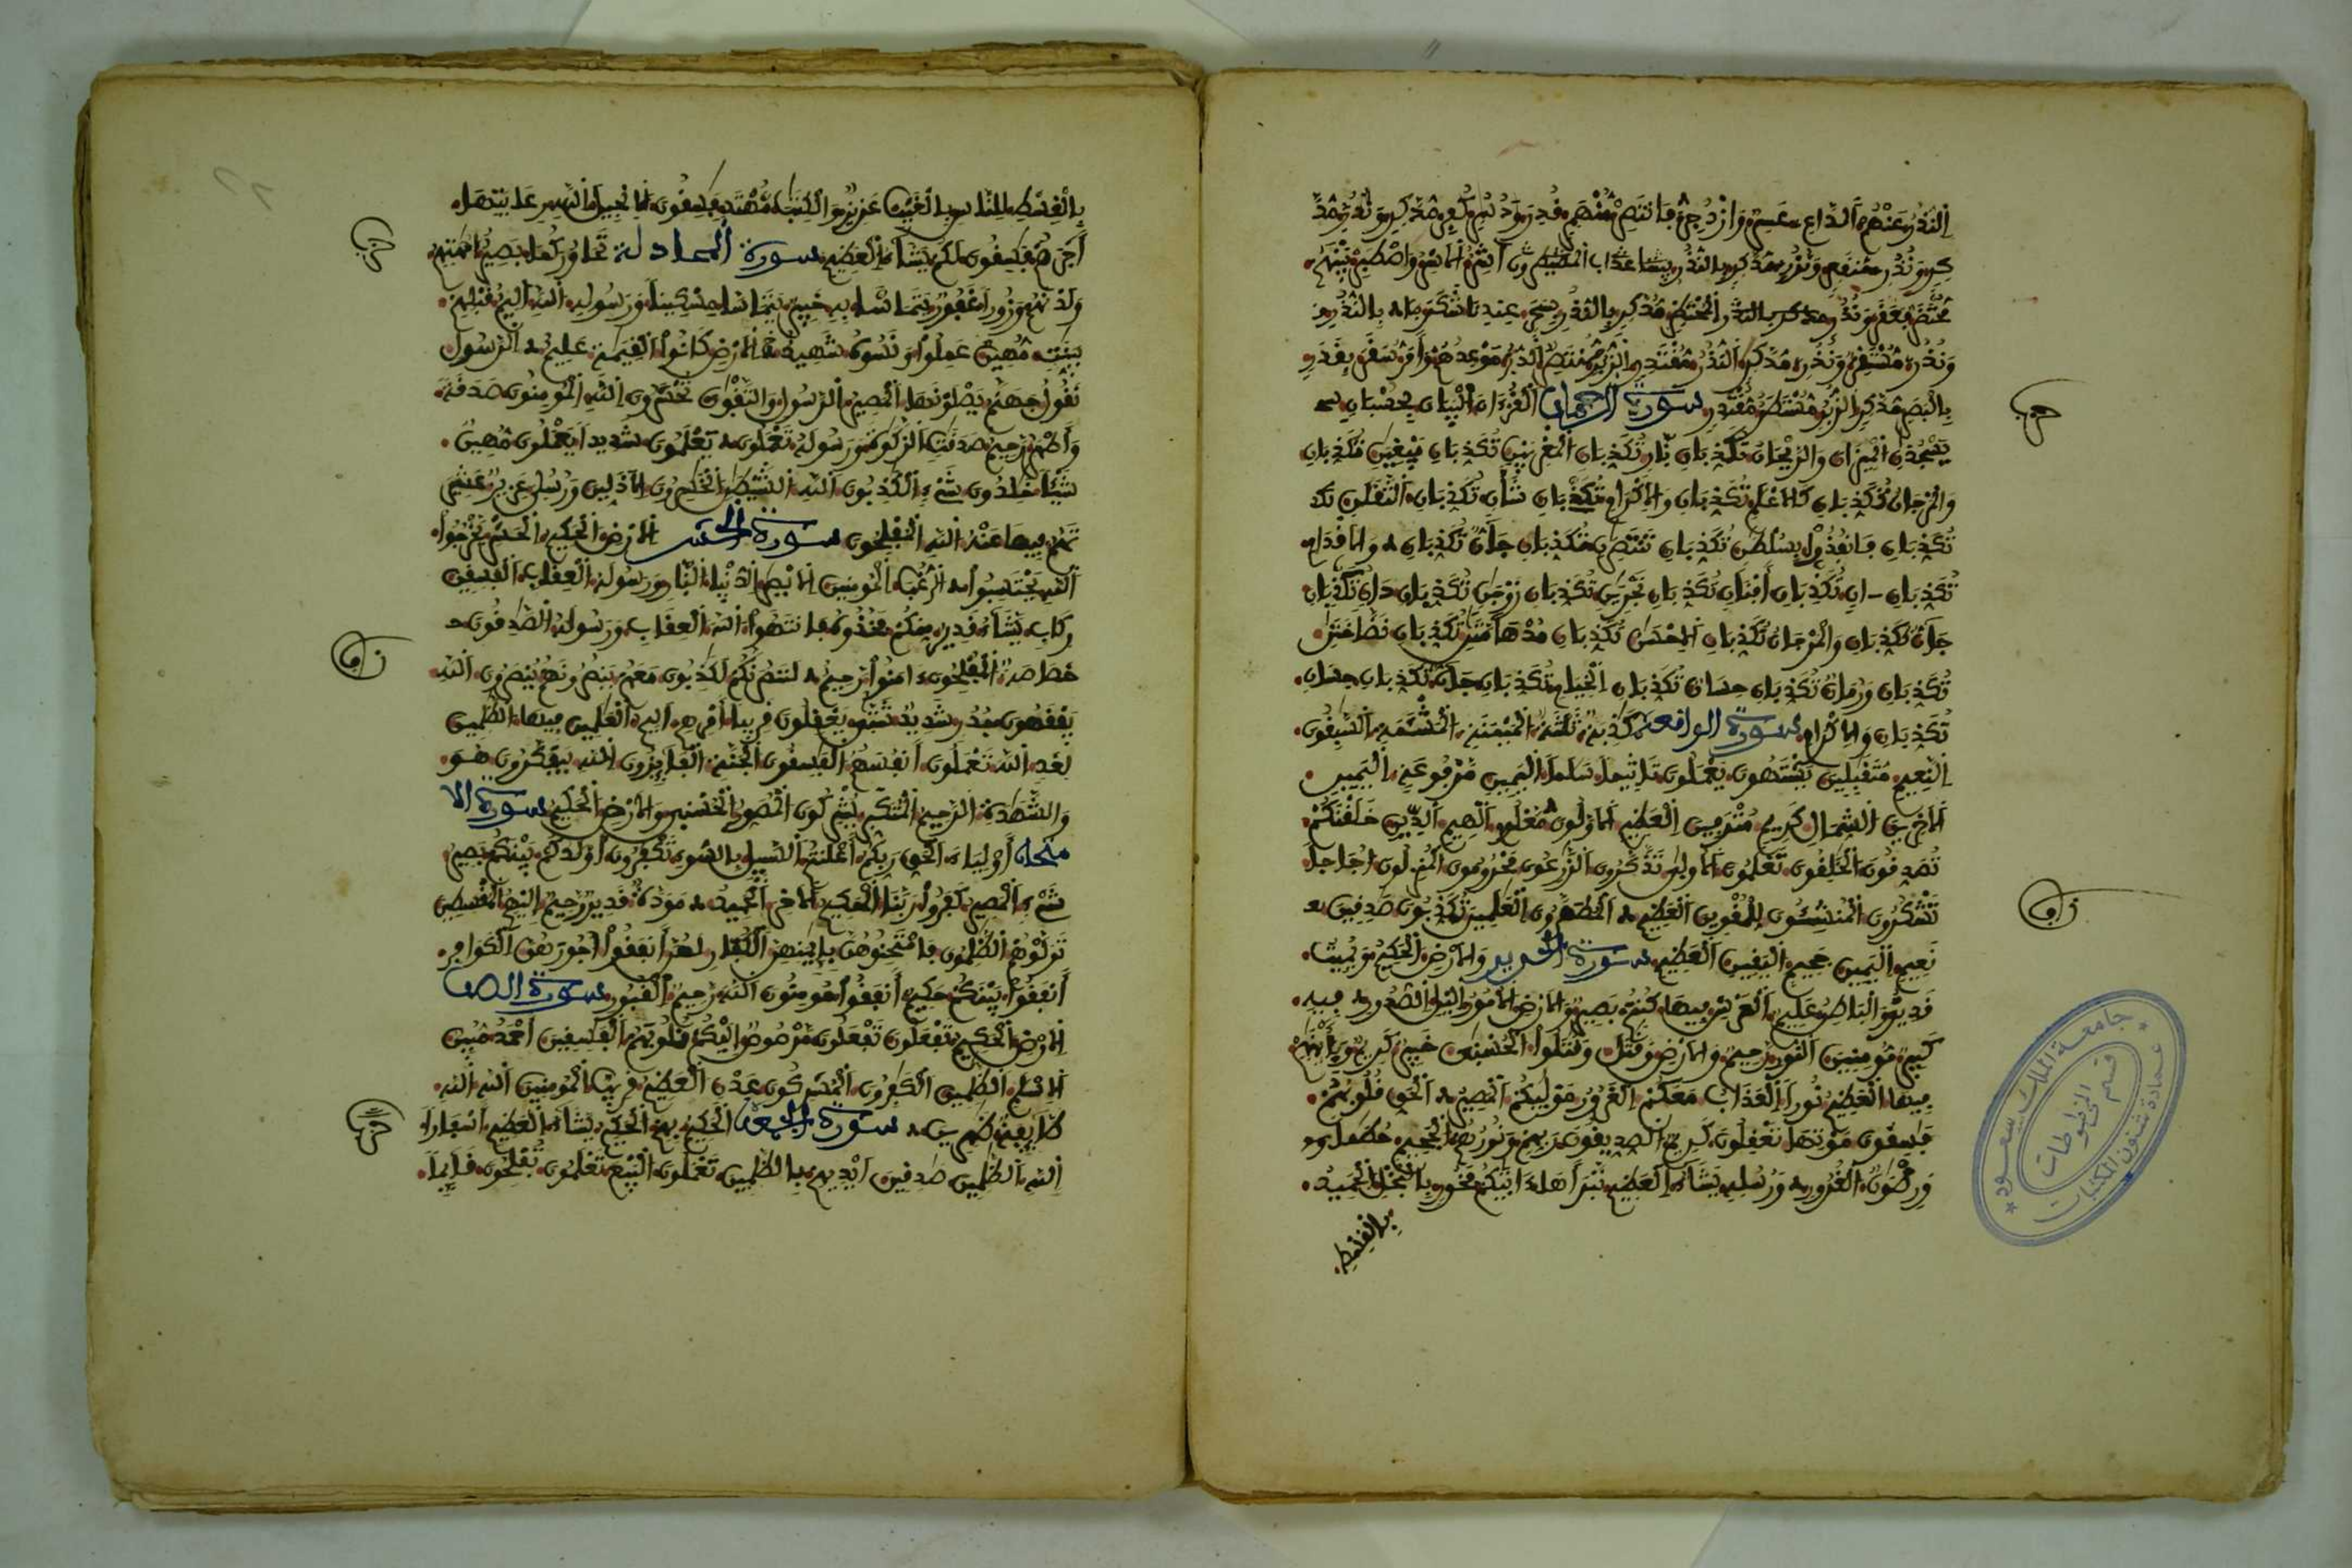 النُّذُرُ عَنْهُمْ الدَّاعِ عَسِرٌ وَازْدُجِرَ فَانتَصِرْ مُّنْهَمِرٍ قُدِرَ وَدُسُرٍ كُفِرَ مُّدَّكِرٍ وَنُذُرِ مُّدَّ
كِرٍ وَنُذُرِ مُّنقَعِرٍ وَنُذُرِ مُّدَّكِرٍ بِالنُّذُرِ
مُّحْتَضَرٌ فَعَقَرَ وَنُذُرِ الْمُحْتَظِرِ مُّدَّكِرٍ بِالنُّذُرِ بِسَحَرٍ عِندِنَا شَكَرَ بِالنُّذُرِ
وَنُذُرِ مُّسْتَقِرٌّ وَنُذُرِ مُّدَّكِرٍ النُّذُرُ مُّقْتَدِرٍ الزُّبُرِ مُّنتَصِرٌ الدُّبُرَ مَوْعِدُهُمْ وَأَمَرُّ سَقَرَ بِقَدَرٍ
بِالْبَصَرِ مُّدَّكِرٍ الزُّبُرِ مُّسْتَطَرٌ مُّقْتَدِرٍ سورة الرحمان الْقُرْءَانَ الْبَيَانَ بِحُسْبَانٍ
يَسْجُدَانِ الْمِيزَانَ وَالرَّيْحَانُ تُكَذِّبَانِ نَّارٍ تُكَذِّبَانِ الْمَغْرِبَيْنِ تُكَذِّبَانِ يَبْغِيَانِ تُكَذِّبَانِ
وَالْمَرْجَانُ تُكَذِّبَانِ كَالْأَعْلَامِ تُكَذِّبَانِ وَالْإِكْرَامِ تُكَذِّبَانِ شَأْنٍ تُكَذِّبَانِ الثَّقَلَانِ تُكَ
تُكَذِّبَانِ فَانفُذُوا بِسُلْطَانٍ تُكَذِّبَانِ تَنتَصِرَانِ تُكَذِّبَانِ جَانٌّ تُكَذِّبَانِ وَالْأَقْدَامِ
تُكَذِّبَانِ ءَانٍ تُكَذِّبَانِ أَفْنَانٍ تُكَذِّبَانِ تَجْرِيَانِ تُكَذِّبَانِ زَوْجَانِ تُكَذِّبَانِ دَانٍ تُكَذِّبَانِ
جَانٌّ تُكَذِّبَانِ وَالْمَرْجَانُ تُكَذِّبَانِ الْإِحْسَانُ تُكَذِّبَانِ مُدْهَامَّتَانِ تُكَذِّبَانِ نَضَّاخَتَانِ
تُكَذِّبَانِ وَرُمَّانٌ تُكَذِّبَانِ حِسَانٌ تُكَذِّبَانِ الْخِيَامِ تُكَذِّبَانِ جَانٌّ تُكَذِّبَانِ حِسَانٍ
تُكَذِّبَانِ وَالْإِكْرَامِ سورة الواقعة كَاذِبَةٌ ثَلَاثَةً الْمَيْمَنَةِ الْمَشْئَمَةِ السَّابِقُونَ
النَّعِيمِ مُتَقَابِلِينَ يَشْتَهُونَ يَعْمَلُونَ تَأْثِيمًا سَلَامًا الْيَمِينِ مَّرْفُوعَةٍ الْيَمِينِ
الْآخِرِينَ الشِّمَالِ كَرِيمٍ مُتْرَفِينَ الْعَظِيمِ الْأَوَّلُونَ مَّعْلُومٍ الْهِيمِ الدِّينِ خَلَقْنَاكُمْ
تُصَدِّقُونَ الْخَالِقُونَ تَعْلَمُونَ الْأُولَى تَذَكَّرُونَ الزَّارِعُونَ مَحْرُومُونَ الْمُنزِلُونَ أُجَاجًا
تَشْكُرُونَ الْمُنشِئُونَ لِّلْمُقْوِينَ الْعَظِيمِ الْمُطَهَّرُونَ الْعَالَمِينَ تُكَذِّبُونَ صَادِقِينَ
نَعِيمٍ الْيَمِينِ جَحِيمٍ الْيَقِينِ الْعَظِيمِ سورة الحديد وَالْأَرْضِ الْحَكِيمُ وَيُمِيتُ
قَدِيرٌ وَالْبَاطِنُ عَلِيمٌ الْعَرْشِ فِيهَا كُنتُمْ بَصِيرٌ وَالْأَرْضِ الْأُمُورُ الَّيْلِ الصُّدُورِ فِيهِ
كَبِيرٌ مُّؤْمِنِينَ النُّورِ رَحِيمٌ وَالْأَرْضِ وَقَاتَلَ وَقَاتَلُوا الْحُسْنَى خَبِيرٌ كَرِيمٌ
فِيهَا الْعَظِيمُ نُورًا الْعَذَابُ مَعَكُمْ الْغَرُورُ مَوْلَاكُمْ الْمَصِيرُ الْحَقِّ قُلُوبُهُمْ
فَاسِقُونَ مَوْتِهَا تَعْقِلُونَ كَرِيمٌ الصِّدِّيقُونَ رَبِّهِمْ وَنُورُهُمْ الْجَحِيمِ حُطَامًا
وَرِضْوَانٌ الْغُرُورِ وَرُسُلِهِ يَشَاءُ الْعَظِيمِ نَّبْرَأَهَا ءَاتَاكُمْ فَخُورٍ بِالْبُخْلِ الْحَمِيدُ
بالقسط
بِالْقِسْطِ لِلنَّاسِ بِالْغَيْبِ عَزِيزٌ وَالْكِتَابَ مُّهْتَدٍ فَاسِقُونَ الْإِنجِيلَ
أَجْرَهُمْ فَاسِقُونَ لَكُمْ يَشَاءُ الْعَظِيمِ سورة المجادلة تَحَاوُرَكُمَا بَصِيرٌ أُمَّهَاتِهِمْ
وَلَدْنَهُمْ وَزُورًا غَفُورٌ يَتَمَاسَّا بِهِ خَبِيرٌ يَتَمَاسَّا مِسْكِينًا وَرَسُولِهِ اللَّهِ أَلِيمٌ قَبْلِهِمْ
بَيِّنَاتٍ مُّهِينٌ عَمِلُوا وَنَسُوهُ شَهِيدٌ الْأَرْضِ كَانُوا الْقِيَامَةِ عَلِيمٌ الرَّسُولِ
نَقُولُ جَهَنَّمُ يَصْلَوْنَهَا الْمَصِيرُ الرَّسُولِ وَالتَّقْوَى تُحْشَرُونَ اللَّهِ الْمُؤْمِنُونَ صَدَقَةً
وَأَطْهَرُ رَّحِيمٌ صَدَقَاتٍ الزَّكَوٰةَ وَرَسُولَهُ تَعْمَلُونَ يَعْلَمُونَ شَدِيدًا يَعْمَلُونَ مُّهِينٌ
شَيْئًا خَالِدُونَ شَيْءٍ الْكَاذِبُونَ اللَّهِ الشَّيْطَانِ الْخَاسِرُونَ الْأَذَلِّينَ وَرُسُلِي عَزِيزٌ عَشِيرَ
تَهُمْ فِيهَا عَنْهُ اللَّهِ الْمُفْلِحُونَ سورة الحشر الْأَرْضِ الْحَكِيمُ الْحَشْرِ يَخْرُجُوا
اللَّهِ يَحْتَسِبُوا الرُّعْبَ الْمُؤْمِنِينَ الْأَبْصَارِ الدُّنْيَا النَّارِ وَرَسُولَهُ الْعِقَابِ الْفَاسِقِينَ
رِكَابٍ يَّشَاءُ قَدِيرٌ مِنكُمْ فَخُذُوهُ فَانتَهُوا اللَّهَ الْعِقَابِ وَرَسُولَهُ الصَّادِقُونَ
خَصَاصَةٌ الْمُفْلِحُونَ ءَامَنُوا رَّحِيمٌ لَنَنصُرَنَّكُمْ لَكَاذِبُونَ مَعَهُمْ يَنصُرُونَهُمْ يُنصَرُونَ اللَّهِ
يَفْقَهُونَ جُدُرٍ شَدِيدٌ شَتَّى يَعْقِلُونَ قَرِيبًا أَمْرِهِمْ أَلِيمٌ الْعَالَمِينَ فِيهَا الظَّالِمِينَ
لِغَدٍ اللَّهَ تَعْمَلُونَ أَنفُسَهُمْ الْفَاسِقُونَ الْجَنَّةِ الْفَائِزُونَ اللَّهِ يَتَفَكَّرُونَ هُوَ
وَالشَّهَادَةِ الرَّحِيمُ الْمُتَكَبِّرُ يُشْرِكُونَ الْمُصَوِّرُ الْحُسْنَى وَالْأَرْضِ الْحَكِيمُ سورة الا
متحان أَوْلِيَاءَ الْحَقِّ رَبِّكُمْ أَعْلَنتُمْ السَّبِيلِ بِالسُّوءِ تَكْفُرُونَ أَوْلَادُكُمْ بَيْنَكُمْ بَصِيرٌ
شَيْءٍ الْمَصِيرُ كَفَرُوا رَبَّنَا الْحَكِيمُ الْآخِرَ الْحَمِيدُ مَّوَدَّةً قَدِيرٌ رَّحِيمٌ إِلَيْهِمْ الْمُقْسِطِينَ
تَوَلَّوْهُمْ الظَّالِمُونَ فَامْتَحِنُوهُنَّ بِإِيمَانِهِنَّ الْكُفَّارِ لَهُنَّ أَنفَقُوا أُجُورَهُنَّ الْكَوَافِرِ
أَنفَقُوا بَيْنَكُمْ حَكِيمٌ أَنفَقُوا مُؤْمِنُونَ اللَّهَ رَّحِيمٌ الْقُبُورِ سورة الصف
الْأَرْضِ الْحَكِيمُ تَفْعَلُونَ تَفْعَلُونَ مَّرْصُوصٌ إِلَيْكُمْ قُلُوبَهُمْ الْفَاسِقِينَ أَحْمَدُ مُّبِينٌ
الْإِسْلَامِ الظَّالِمِينَ الْكَافِرُونَ الْمُشْرِكُونَ عَدْنٍ الْعَظِيمُ قَرِيبٌ الْمُؤْمِنِينَ اللَّهِ اللَّهِ
طَّائِفَةٌ ظَاهِرِينَ سورة الجمعة الْحَكِيمِ بِهِمْ الْحَكِيمُ يَشَاءُ الْعَظِيمِ أَسْفَارًا
اللَّهِ الظَّالِمِينَ صَادِقِينَ أَيْدِيهِمْ بِالظَّالِمِينَ تَعْمَلُونَ الْبَيْعَ تَعْلَمُونَ تُفْلِحُونَ قَائِمًا
جامعة الملك سعود
عمادة شئون المكتبات
قسم المخطوطات